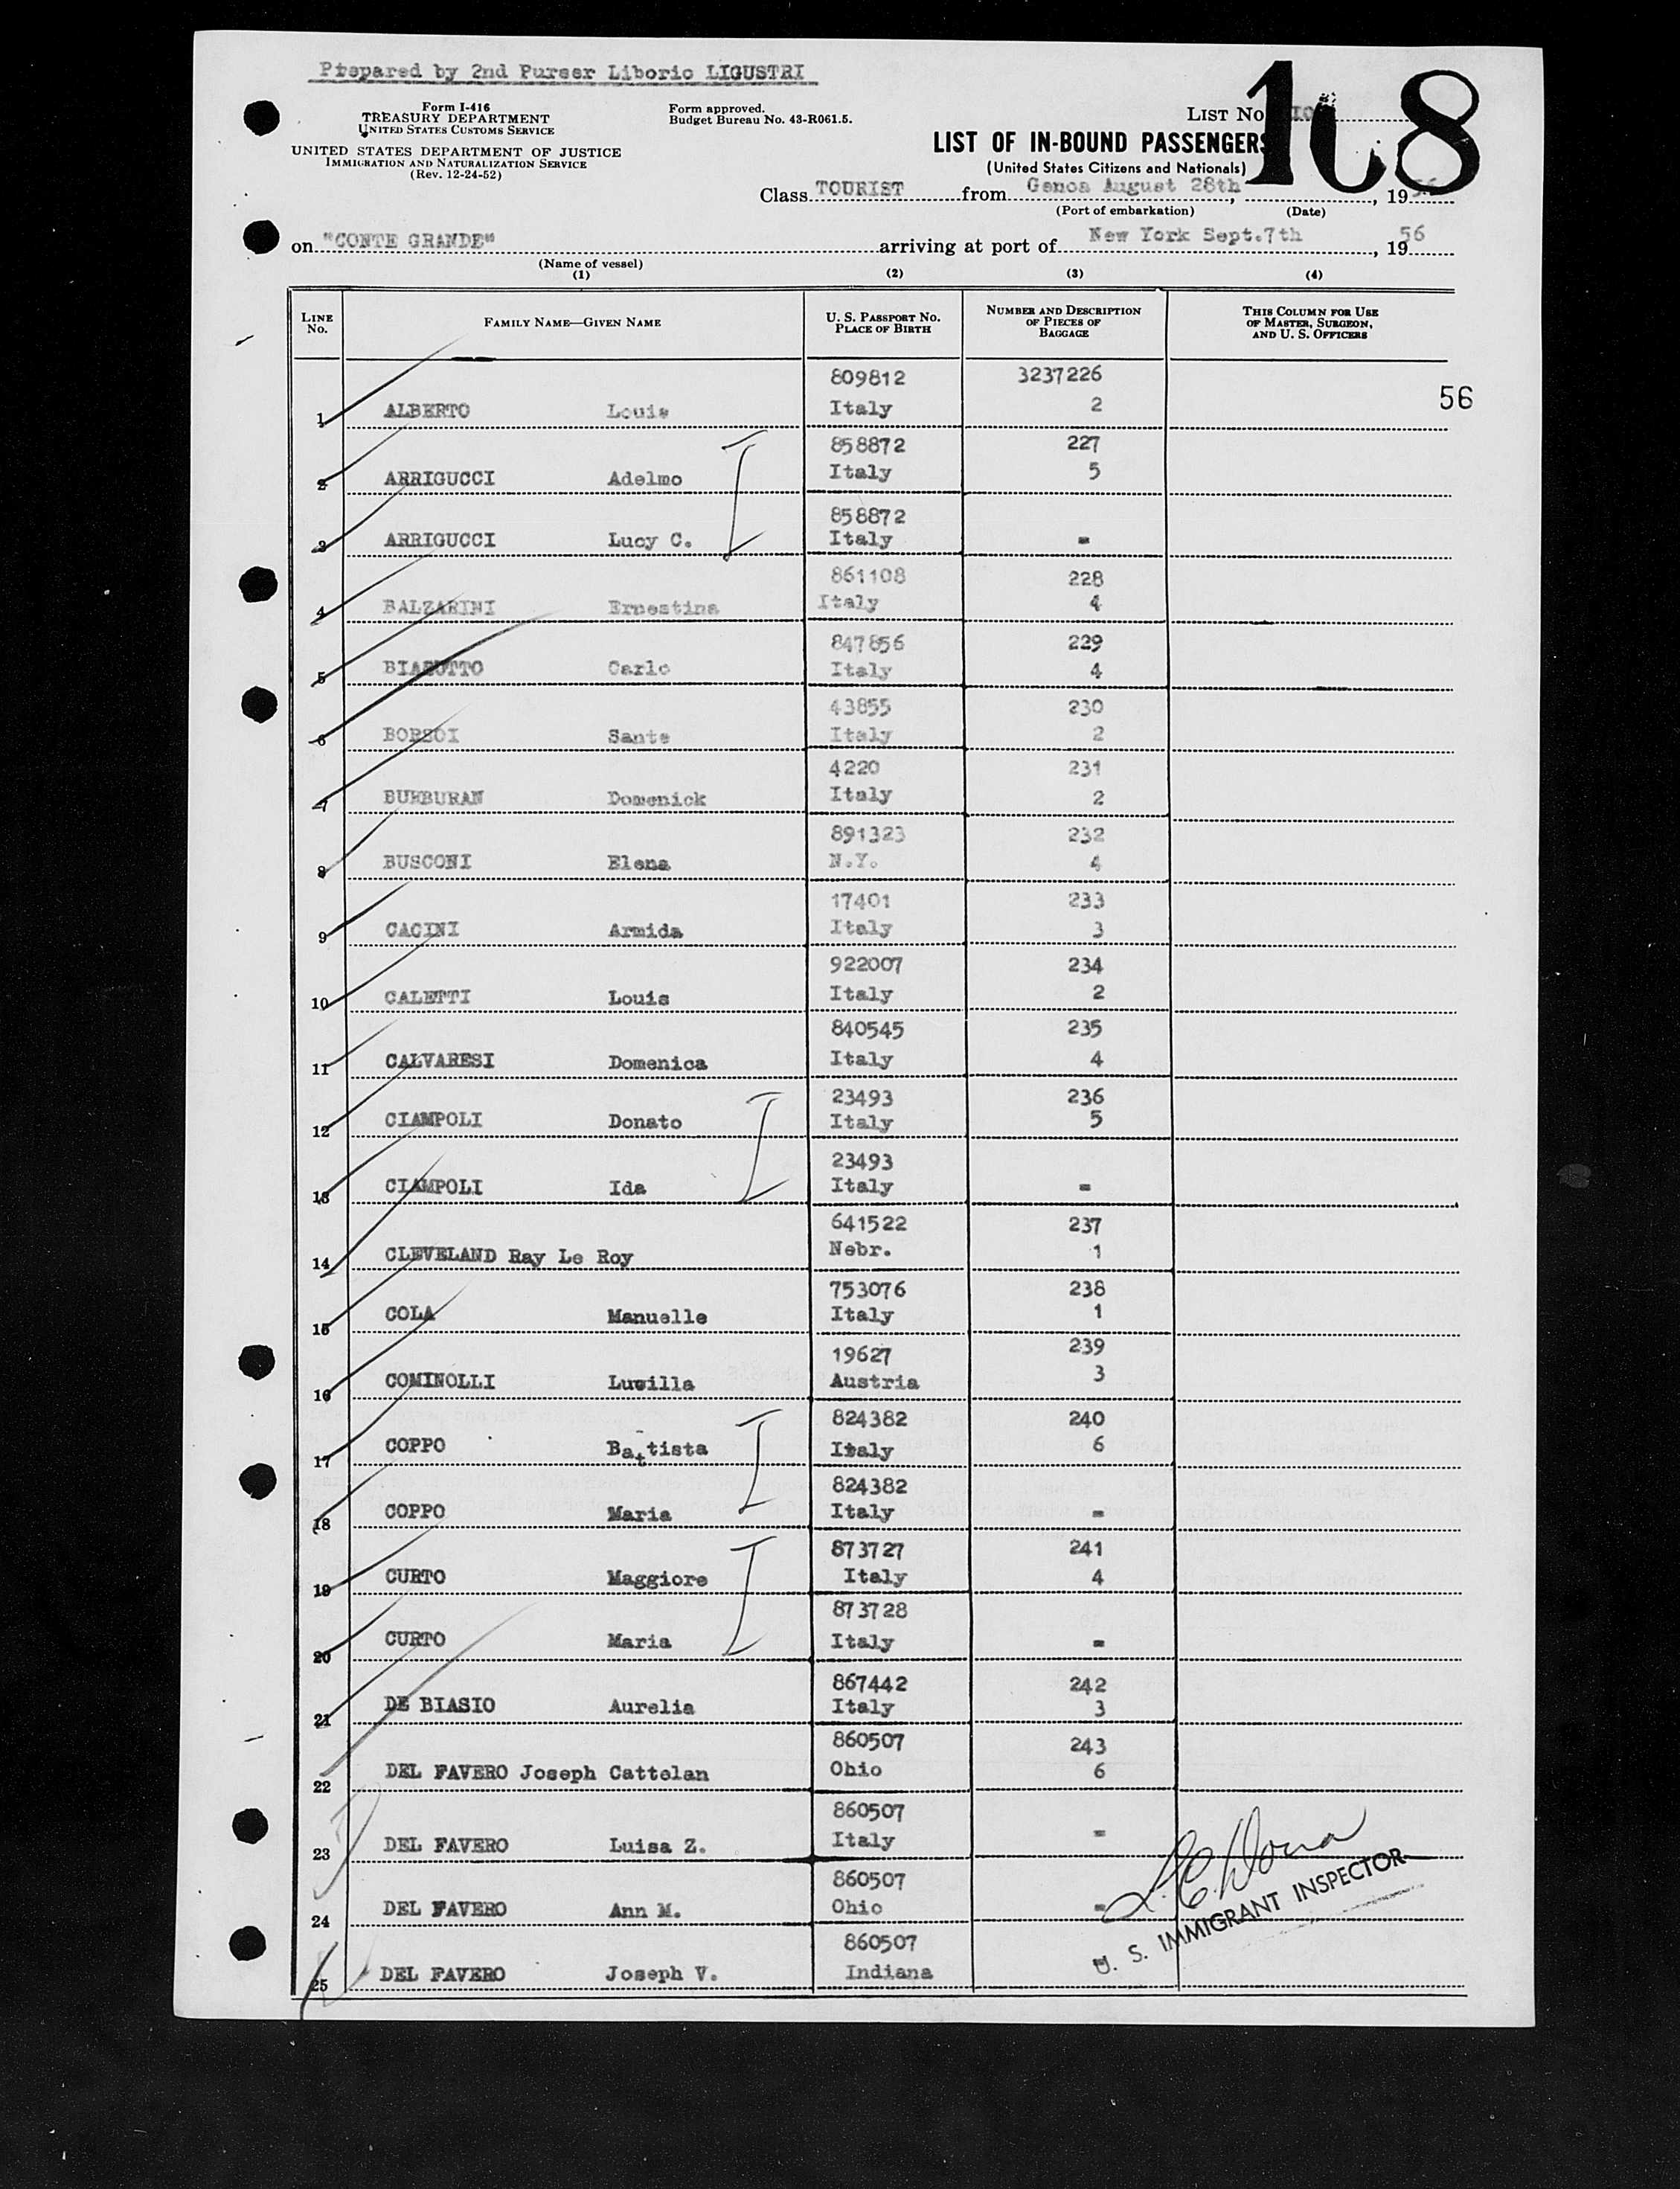 Prepared by 2nd Purser Liborio LIGUSTRI
Form I-416
TREASURY DEPARTMENT
UNITED STATES CUSTOMS SERVICE
UNITED STATES DEPARTMENT OF JUSTICE
IMMIGRATION AND NATURALIZATION SERVICE
(Rev. 12-24-52)
Form approved.
Budget Bureau No. 43-R061.5.
LIST No.
108
LIST OF IN-BOUND PASSENGERS
(United States Citizens and Nationals)
Class TOURIST from Genoa August 28th, 1956
(Port of embarkation) (Date)
on "CONTE GRANDE" arriving at port of New York Sept.7th, 1956
(Name of vessel)
(1) (2) (3) (4)
LINE No. FAMILY NAME—GIVEN NAME U. S. PASSPORT No. PLACE OF BIRTH NUMBER AND DESCRIPTION OF PIECES OF BAGGAGE THIS COLUMN FOR USE OF MASTER, SURGEON, AND U. S. OFFICERS
56
809812 3237226
1 ALBERTO Louis Italy 2
858872 227
2 ARRIGUCCI Adelmo Italy 5
858872
3 ARRIGUCCI Lucy C. Italy =
861108 228
4 BALZARINI Ernestina Italy 4
847856 229
5 BIASUTTO Carlo Italy 4
43855 230
6 BORSOI Sante Italy 2
4220 231
7 BURBURAN Domenick Italy 2
891323 232
8 BUSCONI Elena N.Y. 4
17401 233
9 CACINI Armida Italy 3
922007 234
10 CALETTI Louis Italy 2
840545 235
11 CALVARESI Domenica Italy 4
23493 236
12 CIAMPOLI Donato Italy 5
23493
13 CIAMPOLI Ida Italy =
641522 237
14 CLEVELAND Ray Le Roy Nebr. 1
753076 238
15 COLA Manuelle Italy 1
19627 239
16 COMINOLLI Luwilla Austria 3
824382 240
17 COPPO Battista Italy 6
824382
18 COPPO Maria Italy =
873727 241
19 CURTO Maggiore Italy 4
873728
20 CURTO Maria Italy =
867442 242
21 DE BIASIO Aurelia Italy 3
860507 243
22 DEL FAVERO Joseph Cattelan Ohio 6
860507
23 DEL FAVERO Luisa Z. Italy =
860507
24 DEL FAVERO Ann M. Ohio =
860507
25 DEL FAVERO Joseph V. Indiana
U. S. IMMIGRANT INSPECTOR